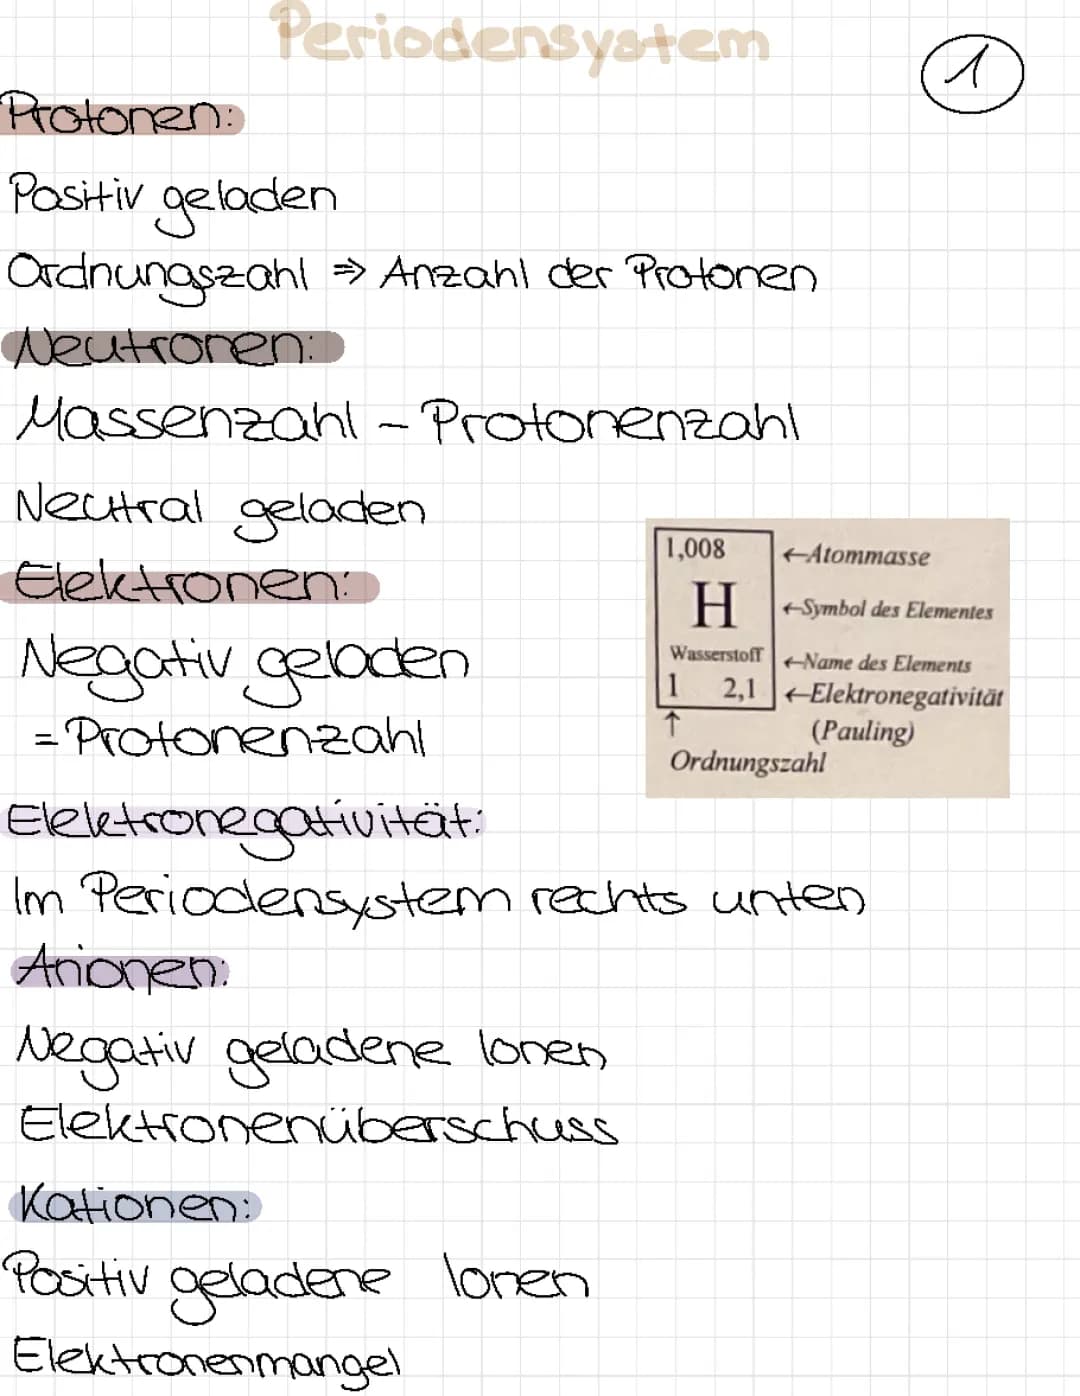 Periodensystem
1
Protonen:
Positiv geladen
Ordnungszahl ⇒ Anzahl der Protonen
Neutronen:
Massenzahl - Protonenzahl
Neutral geladen
Elektronen:
Negativ geladen
= Protonenzahl
1,008 ←Atommasse
H ←Symbol des Elementes
Wasserstoff ←Name des Elements
1 2,1 ←Elektronegativität
↑ (Pauling)
Ordnungszahl
Elektronegativität:
Im Periodensystem rechts unten
Anionen:
Negativ geladene Ionen
Elektronenüberschuss
Kationen:
Positiv geladene Ionen
Elektronenmangel